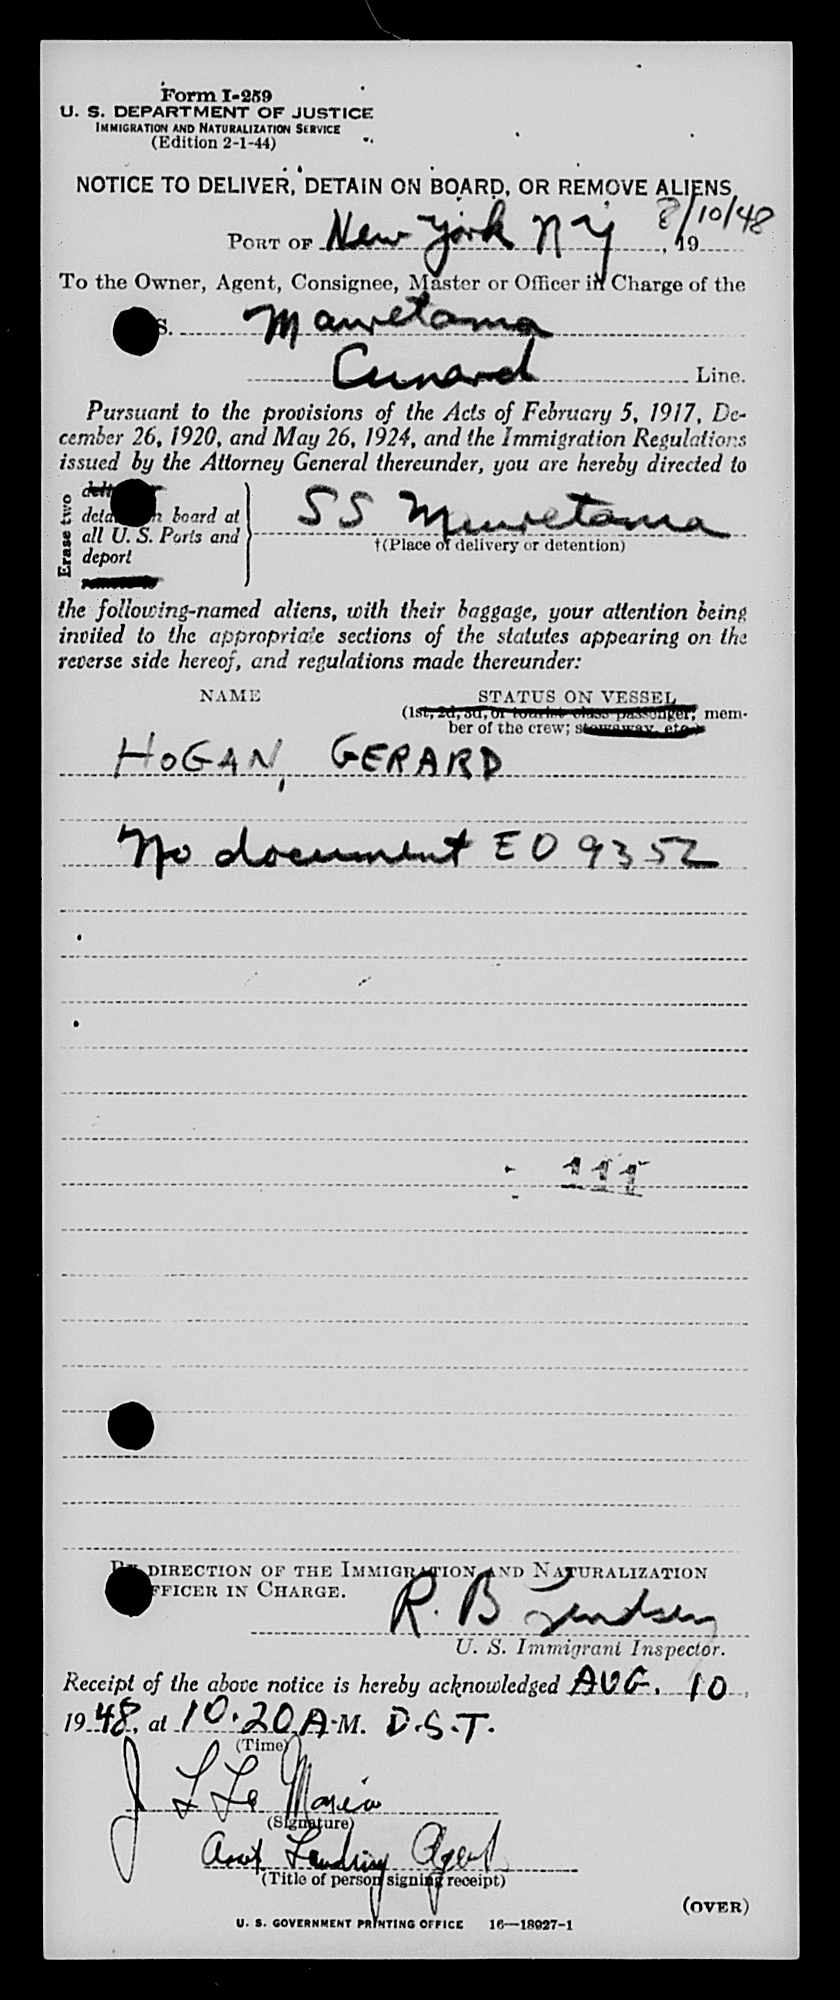 Form I-259
U. S. DEPARTMENT OF JUSTICE
IMMIGRATION AND NATURALIZATION SERVICE
(Edition 2-1-44)
NOTICE TO DELIVER, DETAIN ON BOARD, OR REMOVE ALIENS
PORT OF New York NY 8/10/48, 19
To the Owner, Agent, Consignee, Master or Officer in Charge of the
S. Mauretania
Cunard Line.
Pursuant to the provisions of the Acts of February 5, 1917, De-
cember 26, 1920, and May 26, 1924, and the Immigration Regulations
issued by the Attorney General thereunder, you are hereby directed to
Erase two
detain on board at
all U. S. Ports and
deport
SS Mauretania
†(Place of delivery or detention)
the following-named aliens, with their baggage, your attention being
invited to the appropriate sections of the statutes appearing on the
reverse side hereof, and regulations made thereunder:
NAME STATUS ON VESSEL
(1st, 2d, 3d, or tourist class passenger; mem-
ber of the crew; stowaway, etc.)
HOGAN, GERARD
No document EO 9352
111
BY DIRECTION OF THE IMMIGRATION AND NATURALIZATION
OFFICER IN CHARGE.
R. B Lindsey
U. S. Immigrant Inspector.
Receipt of the above notice is hereby acknowledged AUG. 10,
1948, at 10.20 A.M. D.S.T.
(Time)
J L La
(Signature)
Asst Landing Agent
(Title of person signing receipt)
(OVER)
U. S. GOVERNMENT PRINTING OFFICE 16—18927-1